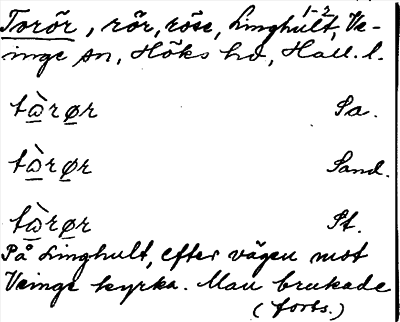 Torör, rör, röse, Linghult 1-2, Ve-
inge sn, Höks hd, Hall. l.
tὼrør Sa.
tὼrør Sand.
tὼrør St.
På Linghult, efter vägen mot
Veinge kyrka. Man brukade
(forts.)